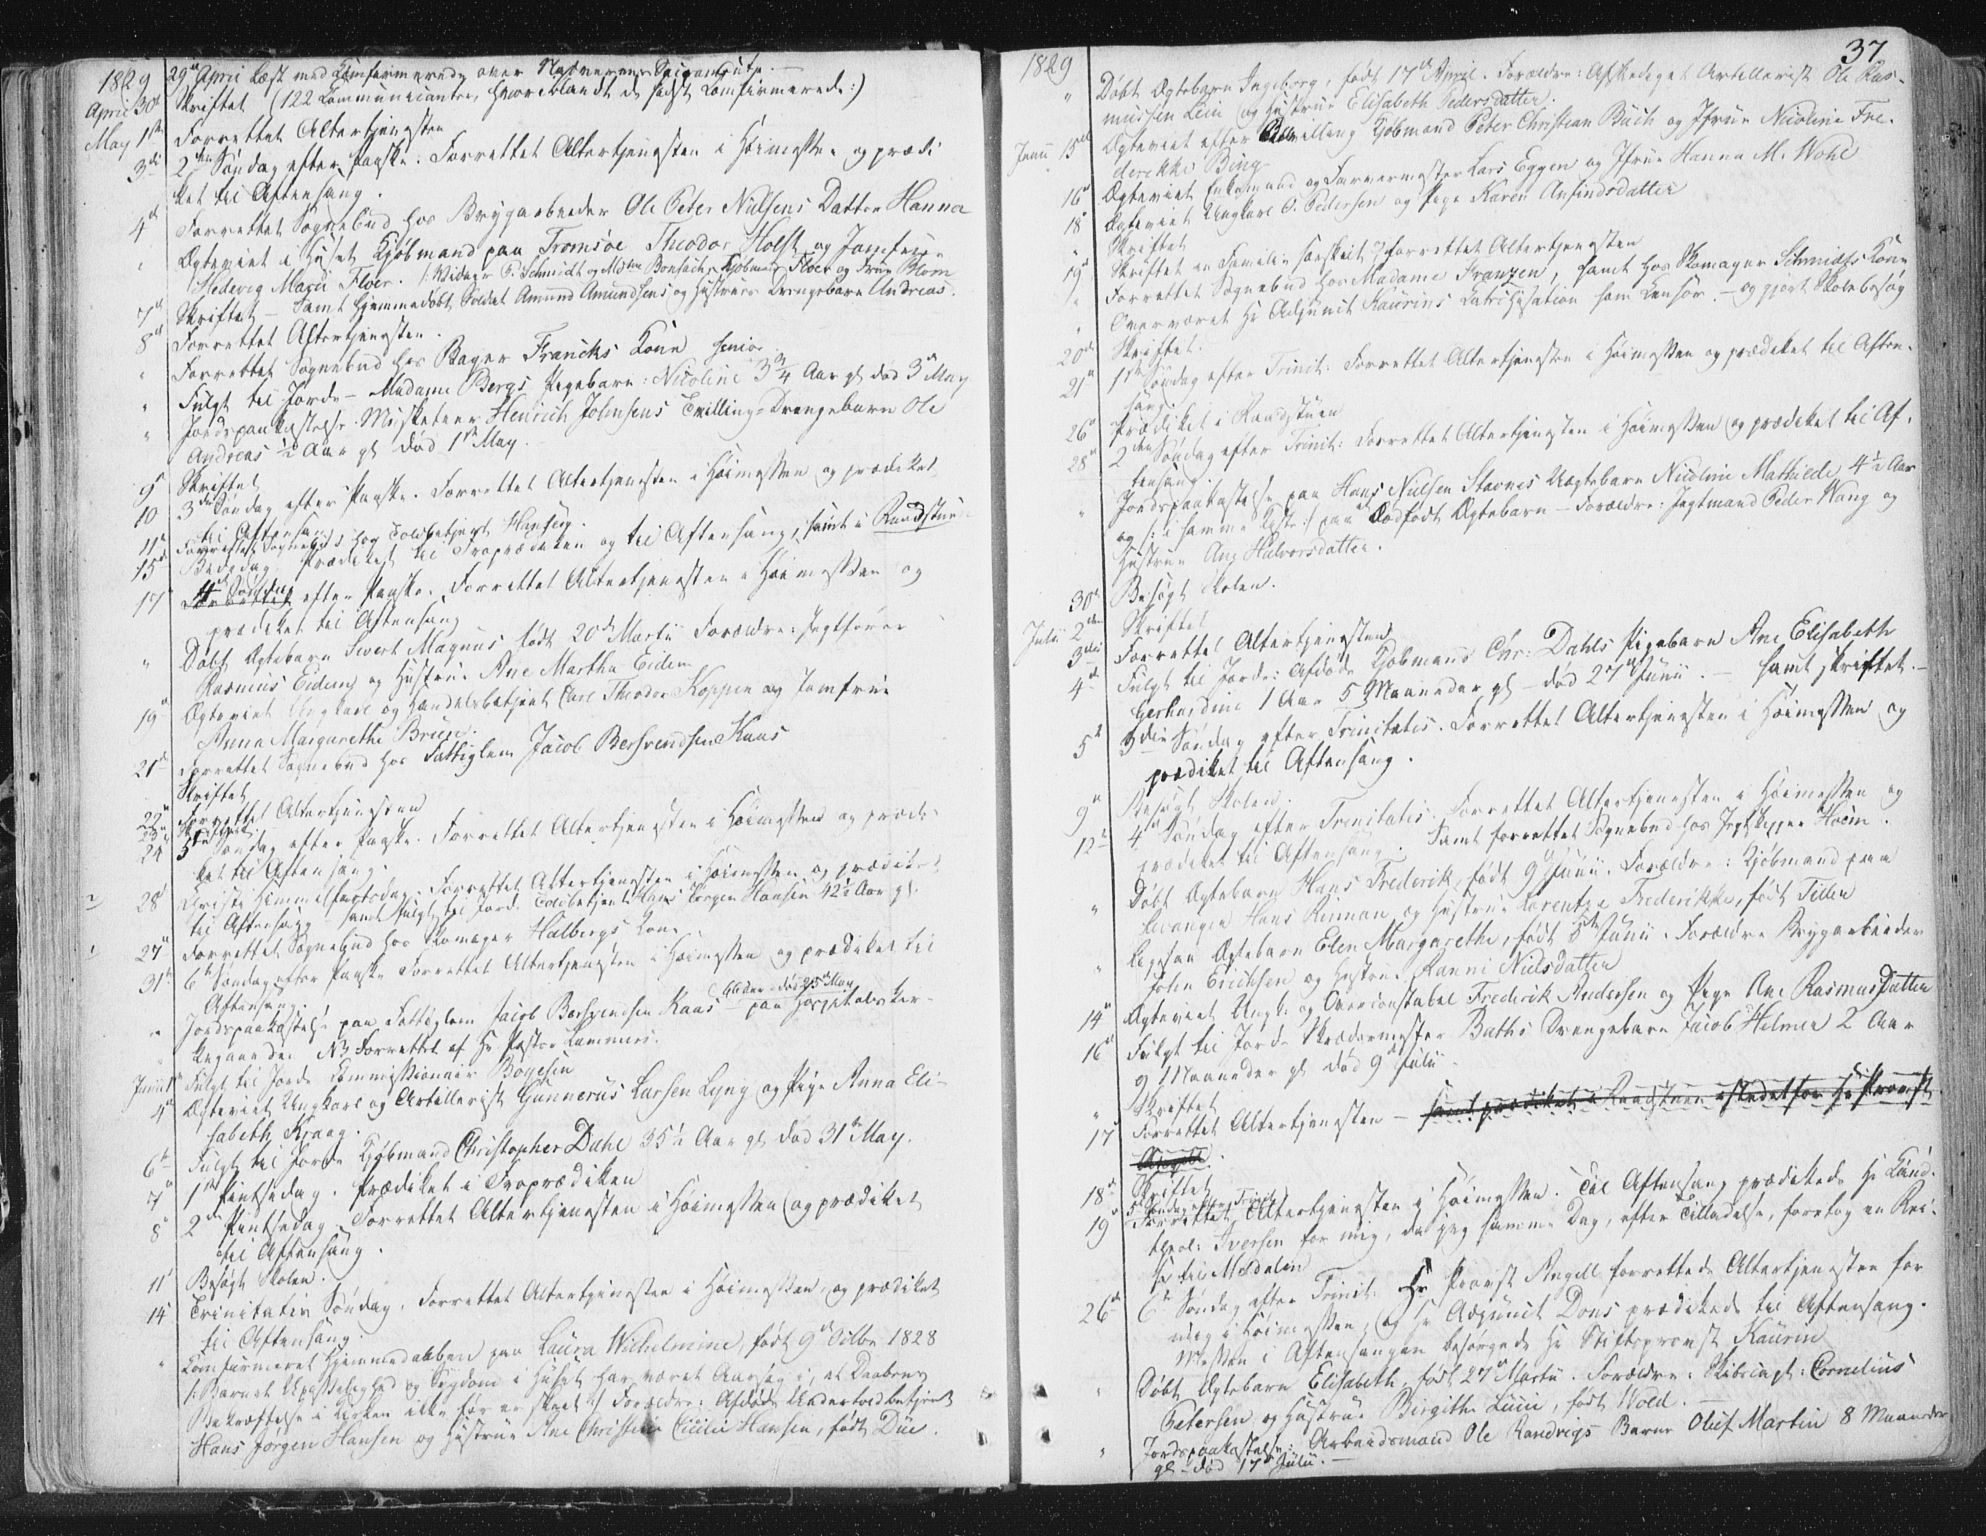 1829 29de April Læst med Konfirmerede over
April 30d Skriftet (122 Communicantere, hvoriblandt de sidst Confirmerede:)
May 1ste Forrettet Altertjenesten
3di 2den Søndag efter Paaske. Forrettet Altertjenesten i Høimessen og prædi
ket til Aftensang.
4d Forrettet Sognebud hos Brygarbeider Ole Peter Nielsens Datter Hanna
" Ægteviet i Huset Kjøbmand paa Tromsøe Theodor Holst og Jomfrue
Hedevig Marie Floer. /: Vidner P. Schmidt og Kjøbmand Floer og Frue Blom
7d Skriftet – Samt Hjemmedøbt Soldat Amund Amundsens og Hustrues Drengebarn Andreas.
8d Forrettet Altertjenesten.
" Forrettet Sognebud hos Bager Francks Kone senior
" Fulgt til Jorde – Madame Bergs Pigebarn: Nicoline 3 3/4 Aar gl død 3d May
" Jordspaakastelse Musketeer Henrich Johnsens Tvillinge-Drengebarn Ole
Andreas 1/2 Aar gl død 1ste May.
9d Skriftet
10 3die Søndag efter Paaske. Forrettet Altertjenesten i Høimessen og prædiket
til Aftensang
11d Forrettet Sognebud hos Toldbetjent Hansen.
15d Bededag Prædiket til Froprædiken og til Aftensang, samt i Raadstuen
17 4d Søndag efter Paaske. Forrettet Altertjenesten i Høimessen og
prædiket til Aftensang
" Døbt Ægtebarn Sivert Magnus født 20d Martii Forældre: Jegtfører
Rasmus Eidem og Hustrue Ane Martha Eidem
19d Ægteviet Ungkarl og Handelsbetjent Carl Theodor Koppen og Jomfrue
Anna Margarethe Bruun.
21d Forrettet Sognebud hos Fattiglem Jacob Berhrendsen Kaas
Skriftet
22d Forrettet Altertjenesten
23d Skriftet
24 5te Søndag efter Paaske. Forrettet Altertjenesten i Høimessen og prædi-
ket til Aftensang.
28d Christi Himmelfartsdag. Forrettet Altertjenesten i Høimessen og prædiket
til Aftensang – samt fulgt til Jord. Toldbetjent Hans Jørgen Hansen 42 1/2 Aar gl.
27d Forrettet Sognebud hos Skomager Halbergs Kone
31d 6te Søndag efter Paaske Forrettet Altertjenesten i Høimessen og prædiket til
Aftensang.
" Jordspaakastelse paa Fattiglem Jacob Berhrendsen Kaas – død 25d May paa Hospitalskir-
kegaarden NB Forrettet af Hr Pastor Lammers.
Junii 1d Fulgt til Jorde Commissionair Bøgesen
4d Ægteviet Ungkarl og Artillerist Gunnerus Larsen Lyng og Pige Anna Eli-
sabeth Kraag.
6d Fulgt til Jorde Kjøbmand Christopher Dahl 35 1/2 Aar gl død 31te May.
7d 1ste Pintsedag. Prædiket i Froprædiken
8d 2den Pintsedag. Forrettet Altertjenesten i Høimessen og prædiket
til Aftensang.
11d Besøgt Skolen.
14d Trinitatis Søndag. Forrettet Altertjenesten i Høimessen og prædiket
til Aftensang.
" Confirmeret Hjemmedaaben paa Laura Wilhelmine, født 9d Octbr 1828
/: Barnet Upasselighed og Sygdom i Huset har været Aarsag i, at Daabens
Bekræftelse i Kirken ikke før er skeet :/ Forældre: Afdøde Undertoldbetjent
Hans Jørgen Hansen og Hustrue Ane Christine Cicilie Hansen, født Due.
37
1829
" Døbt Ægtebarn Ingeborg, født 17d April. Forældre: Afskediget Artillerist Ole Ras-
mussen Lein og Hustrue Elisabeth Pedersdatter.
Junii 15de Ægteviet efter Bevilling Kjøbmand Peter Christian Buch og Jfrue Nicoline Fre-
derikke Bing
16d Ægteviet Enkemand og Farvermester Lars Eggen og Jfrue Hanna M. Wohl
18d Ægteviet Ungkarl O. Pedersen og Pige Karen Arfindsdatter
" Skriftet
19d Skriftet en Familie særskilt & forrettet Altertjenesten
" Forrettet Sognebud hos Madame Franzen, samt hos Skomager Schmidts Kone
" Overværet Hr Adjunct Kaurins Catechisation som Censor. – og gjort Skolebesøg
20de Skriftet.
21d 1ste Søndag efter Trinit: Forrettet Altertjenesten i Høimessen og prædiket til Aften-
sang.
26d Prædiket i Raadstuen
28d 2den Søndag efter Trinit: Forrettet Altertjenesten i Høimessen og prædiket til Af-
tensang.
" Jordspaakastelse paa Hans Nielsen Stavnes Uægtebarn Nicoline Mathilde 4 1/2 Aar
og /: i samme Kiste :/ paa Dødfødt Ægtebarn – Forældre: Jegtmand Peder Wang og
Hustrue Ane Halvorsdatter.
30d Besøgt Skolen.
Julii 2den Skriftet
3die Forrettet Altertjenesten
4d Fulgt til Jorde: Afdøde Kjøbmand Chr: Dahls Pigebarn Ane Elisabeth
Gerhardine 1 Aar 5 Maaneder gl – død 27d Junii. – samt skriftet. –
5d 3die Søndag efter Trinitatis. Forrettet Altertjenesten i Høimessen og
prædiket til Aftensang.
9d Besøgt Skolen.
12d 4d Søndag efter Trinitatis. Forrettet Altertjenesten i Høimessen og
prædiket til Aftensang. Samt forrettet Sognebud hos Jegtskipper Hoem.
" Døbt Ægtebarn Hans Frederik, født 9d Junii. Forældre: Kjøbmand paa
Levanger Hans Rinman og Hustrue Lorentze Frederikke, født Tiller
" Ligesaa Ægtebarn Elen Margarethe, født 5te Junii. Forældre Brygarbeider
John Erichsen og Hustrue Ranni Nielsdatter
14d Ægteviet Ungk: og Overconstabel Frederik Andersen og Pige Ane Rasmusdatter
16d Fulgt til Jord – Skrædermester Baths Drengebarn Jacob Helmer 2 Aar
9 Maaneder gl død 9d Julii
" Skriftet
17d Forrettet Altertjenesten – samt prædiket i Raadstuen istedetfor Hr Provst
Angell.
18d Skriftet
19d 5te Søndag efter Trinit: Forrettet Altertjenesten i Høimessen. Til Aftensang prædikede Hr Cand:
theol: Iversen for mig, da jeg samme Dag, efter Tilladelse, foretog en Rei-
se til Meldalen
26d 6te Søndag efter Trinit. Hr Provst Angell forrettede Altertjenesten for
mig i Høimessen, og Hr Adjunct Dons prædikede til Aftensang.
Messen i Aftensangen besørgede Hr Stiftsprovst Kaurin
" Døbt Ægtebarn Elisabeth, født 27d Martii. Forældre: Skibscapt: Cornelius
Petersen og Hustrue Birgithe Lucie, født Wold. –
" Jordspaakastelse: Arbeidsmand Ole Randvigs Barn Oluf Martin 8 Maaneder
gl – død 17d Julii. –